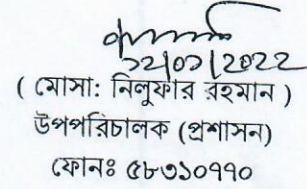 ১২/০১/2022
( মোসা: নিলুফার রহমান )
উপপরিচালক (প্রশাসন)
ফোনঃ ৫৮৩১০৭৭০